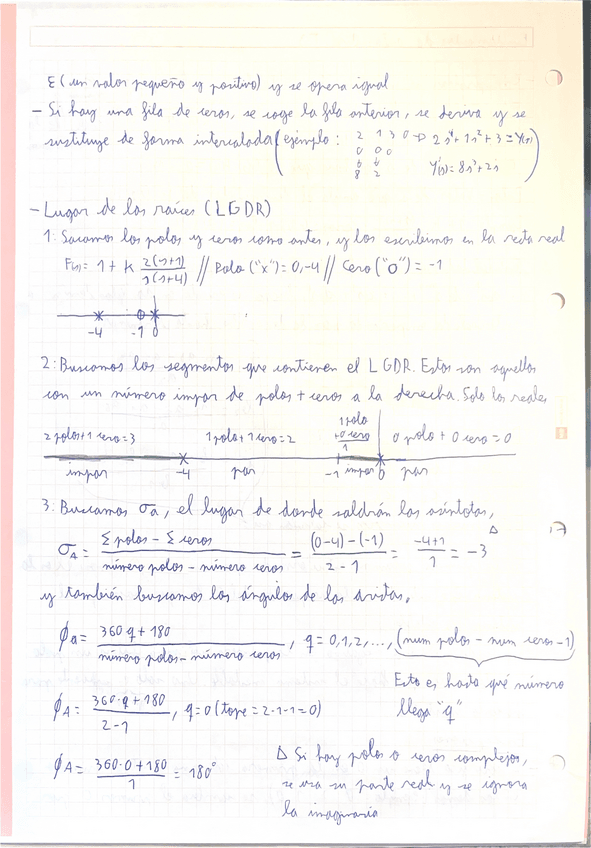 ε (un valor pequeño y positivo) y se opera igual
- Si hay una fila de ceros, se coge la fila anterior, se deriva y se
sustituye de forma intercalada (ejemplo: 2 1 3 0 → 2s⁴+1s²+3=Y(s)
0 0 0
8 2 Y'(s)=8s³+2s)
- Lugar de las raíces (LGDR)
1: Sacamos los polos y ceros como antes, y los escribimos en la recta real
F(s) = 1 + K 2(s+1)/s(s+4) // Polo ("x") = 0,-4 // Cero ("o") = -1
-4 -1 0
2: Buscamos los segmentos que contienen el LGDR. Estos son aquellos
con un número impar de polos + ceros a la derecha. Solo los reales
2 polos + 1 cero = 3 1 polo + 1 cero = 2 1 polo + 0 cero 1 0 polo + 0 cero = 0
impar -4 par -1 impar 0 par
3: Buscamos σa, el lugar de donde saldrán las asíntotas,
σA = Σ polos - Σ ceros / número polos - número ceros = (0-4)-(-1) / 2-1 = -4+1 / 1 = -3 Δ
y también buscamos los ángulos de las
ϕa = 360q+180 / número polos - número ceros , q = 0,1,2,..., (num polos - num ceros - 1)
Esto es, hasta qué número
llega "q"
ϕA = 360·q+180 / 2-1 , q=0 (tope = 2-1-1=0)
ϕA = 360·0+180 / 1 = 180°
Δ Si hay polos o ceros complejos,
se usa su parte real y se ignora
la imaginaria